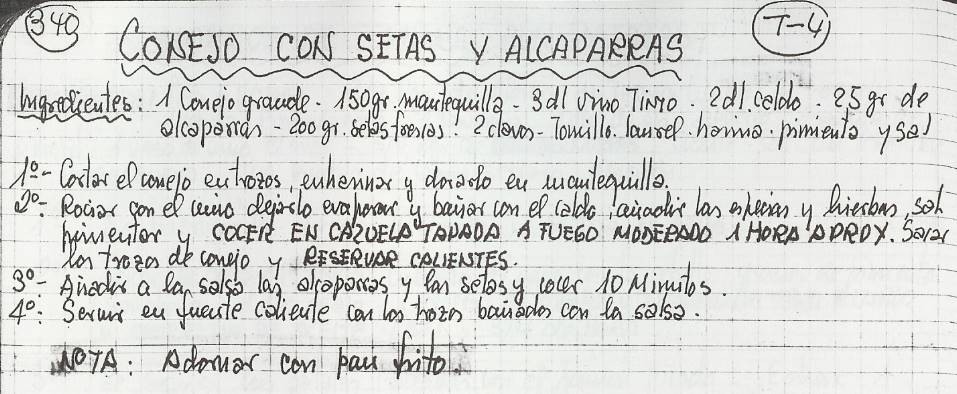 340
T-4
CONEJO CON SETAS Y ALCAPARRAS
Ingredientes: 1 Conejo grande - 150 gr. mantequilla - 3 dl vino TINTO - 2 dl. caldo - 25 gr de
alcaparras - 200 gr. setas frescas - 2 clavos - Tomillo. laurel. harina. pimienta y sal
1º- Cortar el conejo en trozos, enharinar y dorarlo en mantequilla.
2º- Rociar con el vino dejarlo evaporar y bañar con el caldo, añadir las especias y hierbas, sal
pimentar y COCER EN CAZUELA TAPADA A FUEGO MODERADO 1 HORA APROX. Sacar
los trozos de conejo y RESERVAR CALIENTES.
3º- Añadir a la salsa las alcaparras y las setas y cocer 10 Minutos.
4º: Servir en fuente caliente con los trozos bañados con la salsa.
NOTA: Adornar con pan frito.